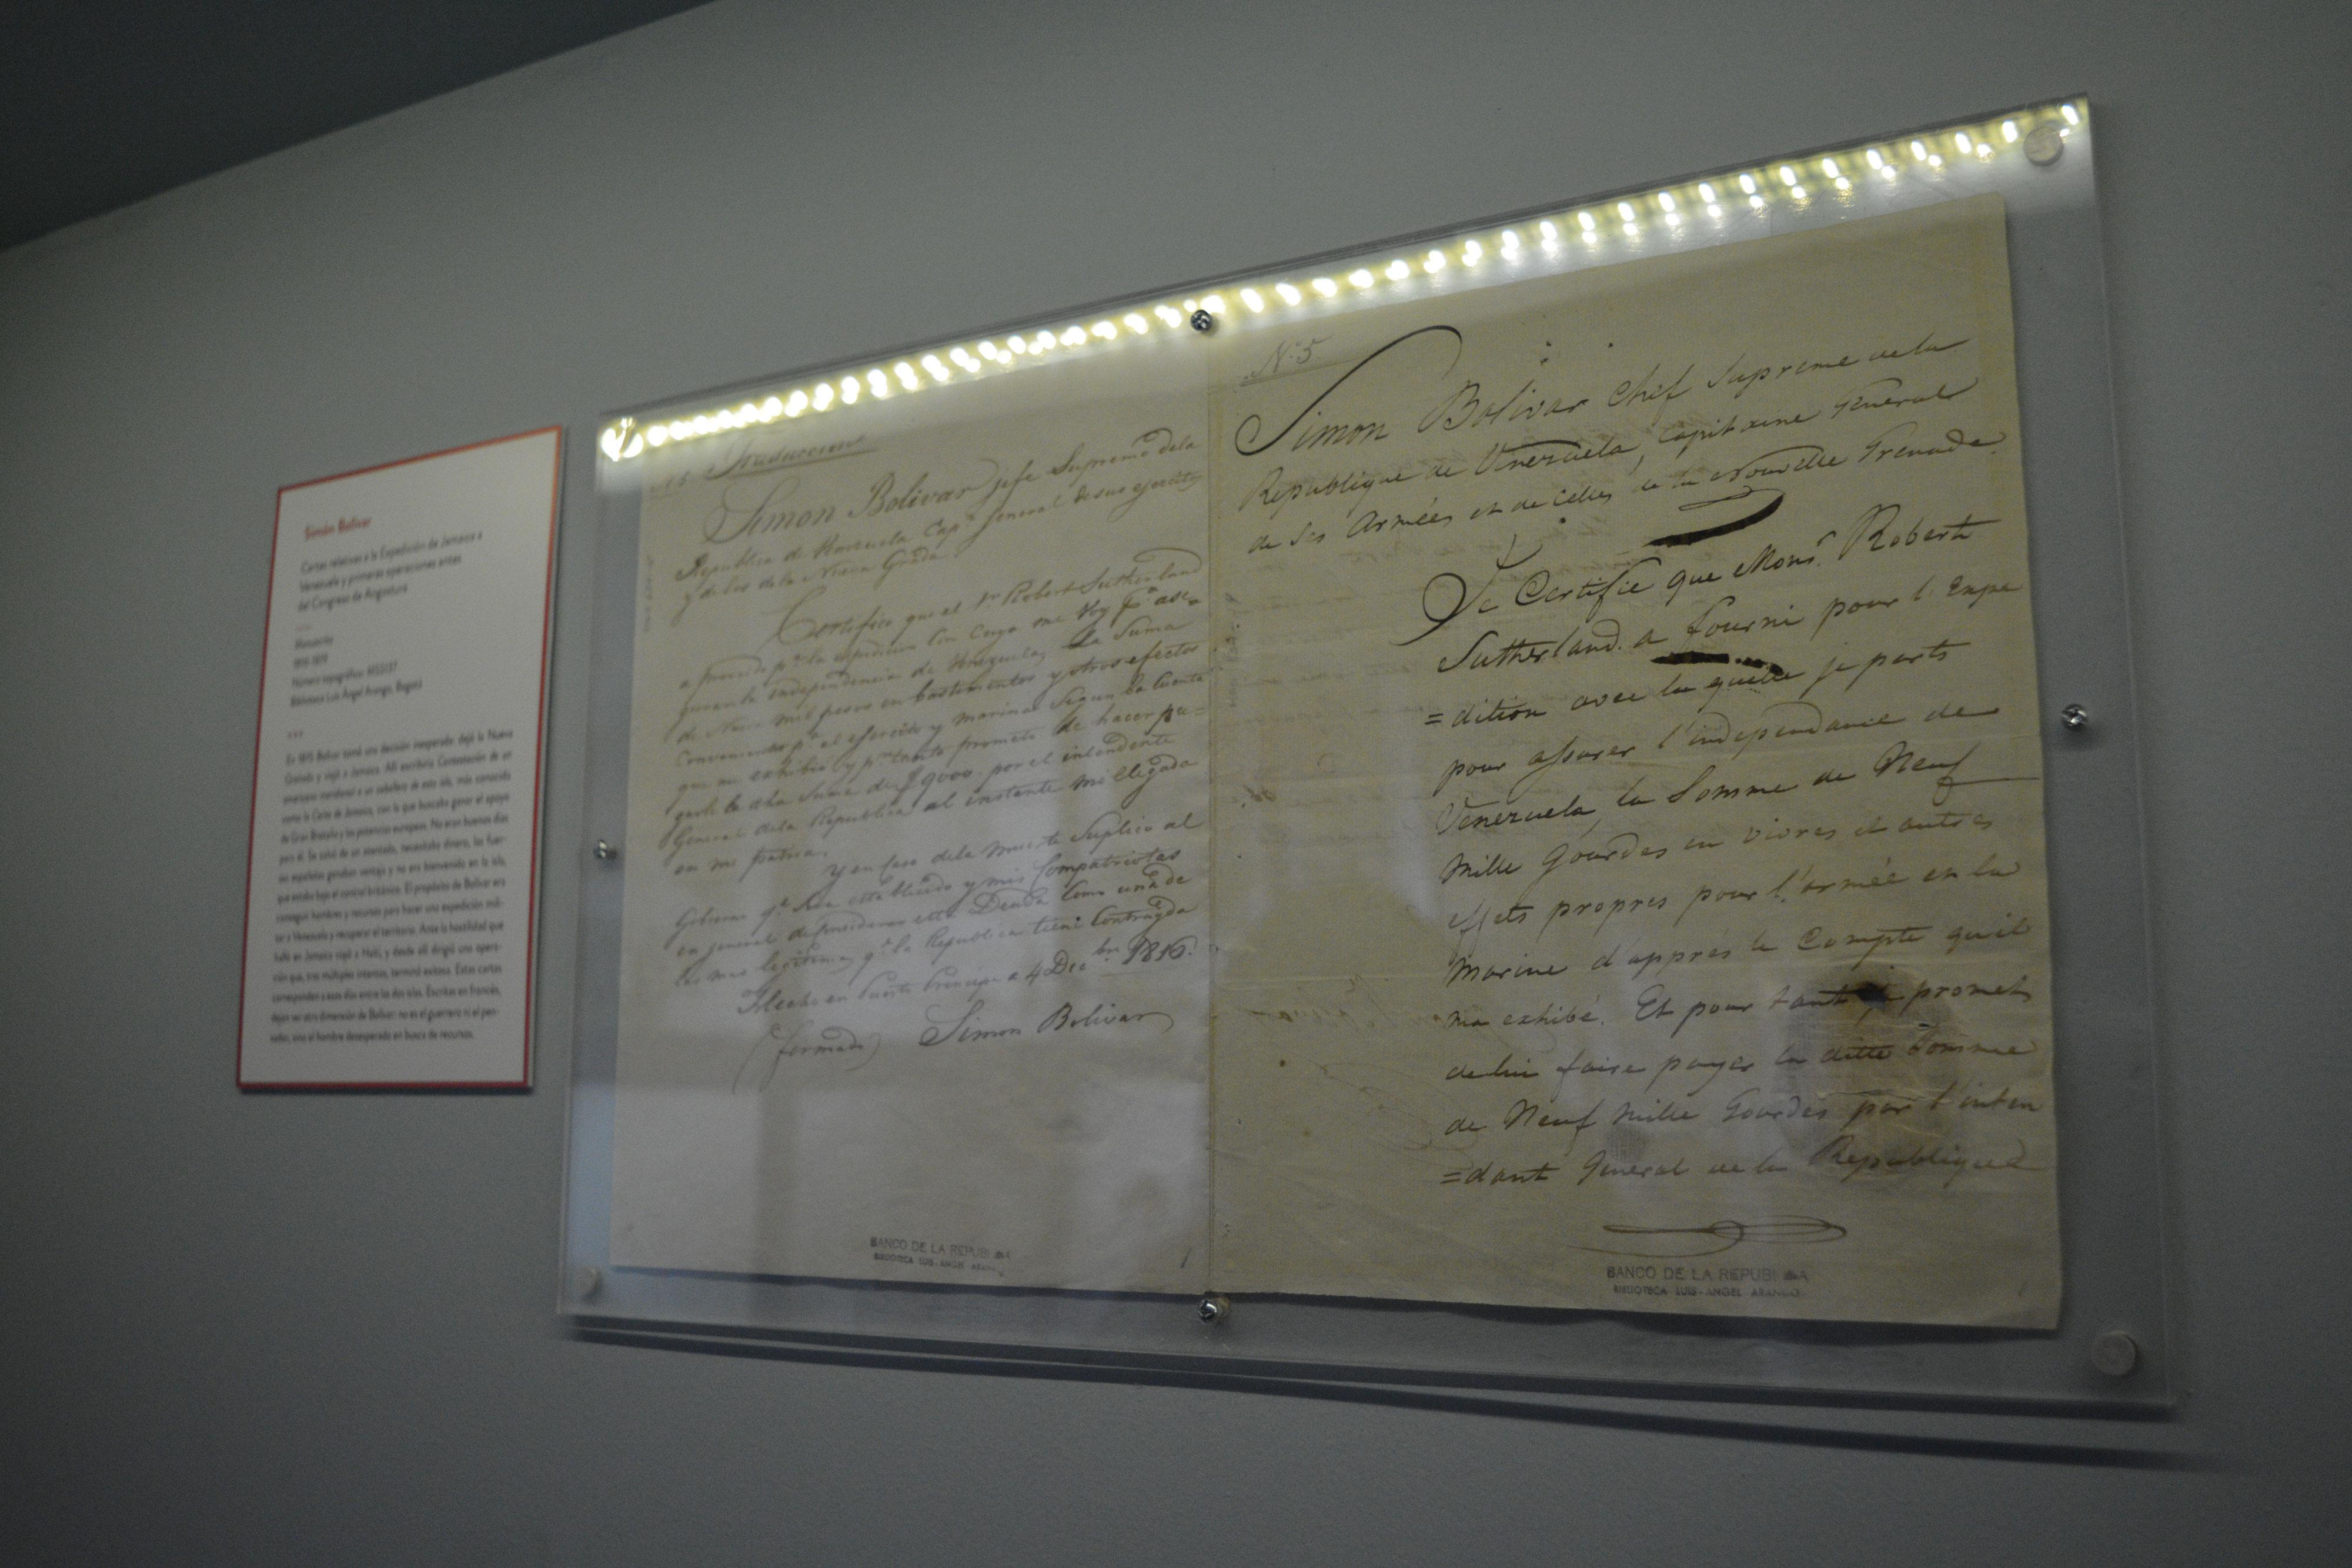 Simón Bolívar
Cartas relativas a la Expedición de Jamaica a
Venezuela y primeras operaciones antes
del Congreso de Angostura
Manuscrito
1816-1819
Número topográfico: MSS137
Biblioteca Luis Ángel Arango, Bogotá
***
En 1815 Bolívar tomó una decisión inesperada: dejó la Nueva
Granada y viajó a Jamaica. Allí escribiría Contestación de un
americano meridional a un caballero de esta isla, más conocida
como la Carta de Jamaica, con la que buscaba ganar el apoyo
de Gran Bretaña y las potencias europeas. No eran buenos días
para él. Se salvó de un atentado, necesitaba dinero, las fuer-
zas españolas ganaban ventaja y no era bienvenido en la isla,
que estaba bajo el control británico. El propósito de Bolívar era
conseguir hombres y recursos para hacer una expedición mili-
tar a Venezuela y recuperar el territorio. Ante la hostilidad que
halló en Jamaica viajó a Haití, y desde allí dirigió una opera-
ción que, tras múltiples intentos, terminó exitosa. Estas cartas
corresponden a esos días entre las dos islas. Escritas en francés,
dejan ver otra dimensión de Bolívar: no es el guerrero ni el pen-
sador, sino el hombre desesperado en busca de recursos.
Traduccion
Simon Bolivar jefe Supremo dela
Republica de Venezuela Capn. General de sus ejercitos
y delos dela Nueva Granada
Certifico que el Sr Robert Sutherland
a proveido pa. la expedicion con cuya me voy pa. ase-
gurar la independencia de Venezuela, la Suma
de Nueve mil pesos en bastimentos y otros efectos
Convenientes pa. el ejercito y marina Segun la Cuenta
que me exhibió y pr. tanto prometo de hacer pa=
garle la dha Suma de $9000. por el intendente
General dela Republica al instante mi llegada
en mi patria.
Y en Caso dela muerte Suplico al
Gobierno qe. Sea establecido y mis Compatriotas
en general de considerar esta Deuda Como una de
las mas legitimas qe. la Republica tiene Contrayda
Hecho en Puerto Principe a 4 Decbre 1816.
(firmado) Simon Bolivar
BANCO DE LA REPUBLICA
BIBLIOTECA LUIS-ANGEL ARANGO
N: 5
Simon Bolivar Chef Supreme de la
Republique de Venezuela, Capitaine General
de ses Armées et de Celles de la Nouvelle Grenade.
Je Certifie que Monsr. Robert
Sutherland. a fourni pour l'Expe
=dition avec la quelle je parts
pour assurer l'independance de
Venezuela, la Somme de Neuf
Mille Gourdes en vivres et autres
effets propres pour l'armée et la
Marine d'apprés le Compte qu'il
ma exhibé. Et pour tant je promets
de lui faire payer la ditte Somme
de Neuf Mille Gourdes par l'inten
=dant General de la Republique
BANCO DE LA REPUBLICA
BIBLIOTECA LUIS-ANGEL ARANGO